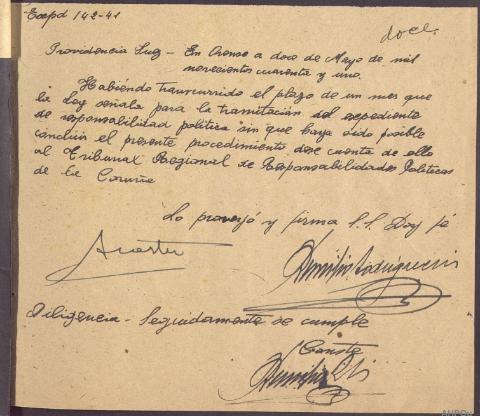 Exepd 142-41
doce.
Providencia Juez - En Orense a doce de Mayo de mil
novecientos cuarenta y uno.
Habiendo transcurrido el plazo de un mes que
la Ley señala para la tramitación del expediente
de responsabilidad política sin que haya sido posible
concluir el presente procedimiento dese cuenta de ello
al Tribunal Regional de Responsabilidades Políticas
de la Coruña
Lo proveyó y firma S.S. Doy fé
Diligencia - Seguidamente se cumple